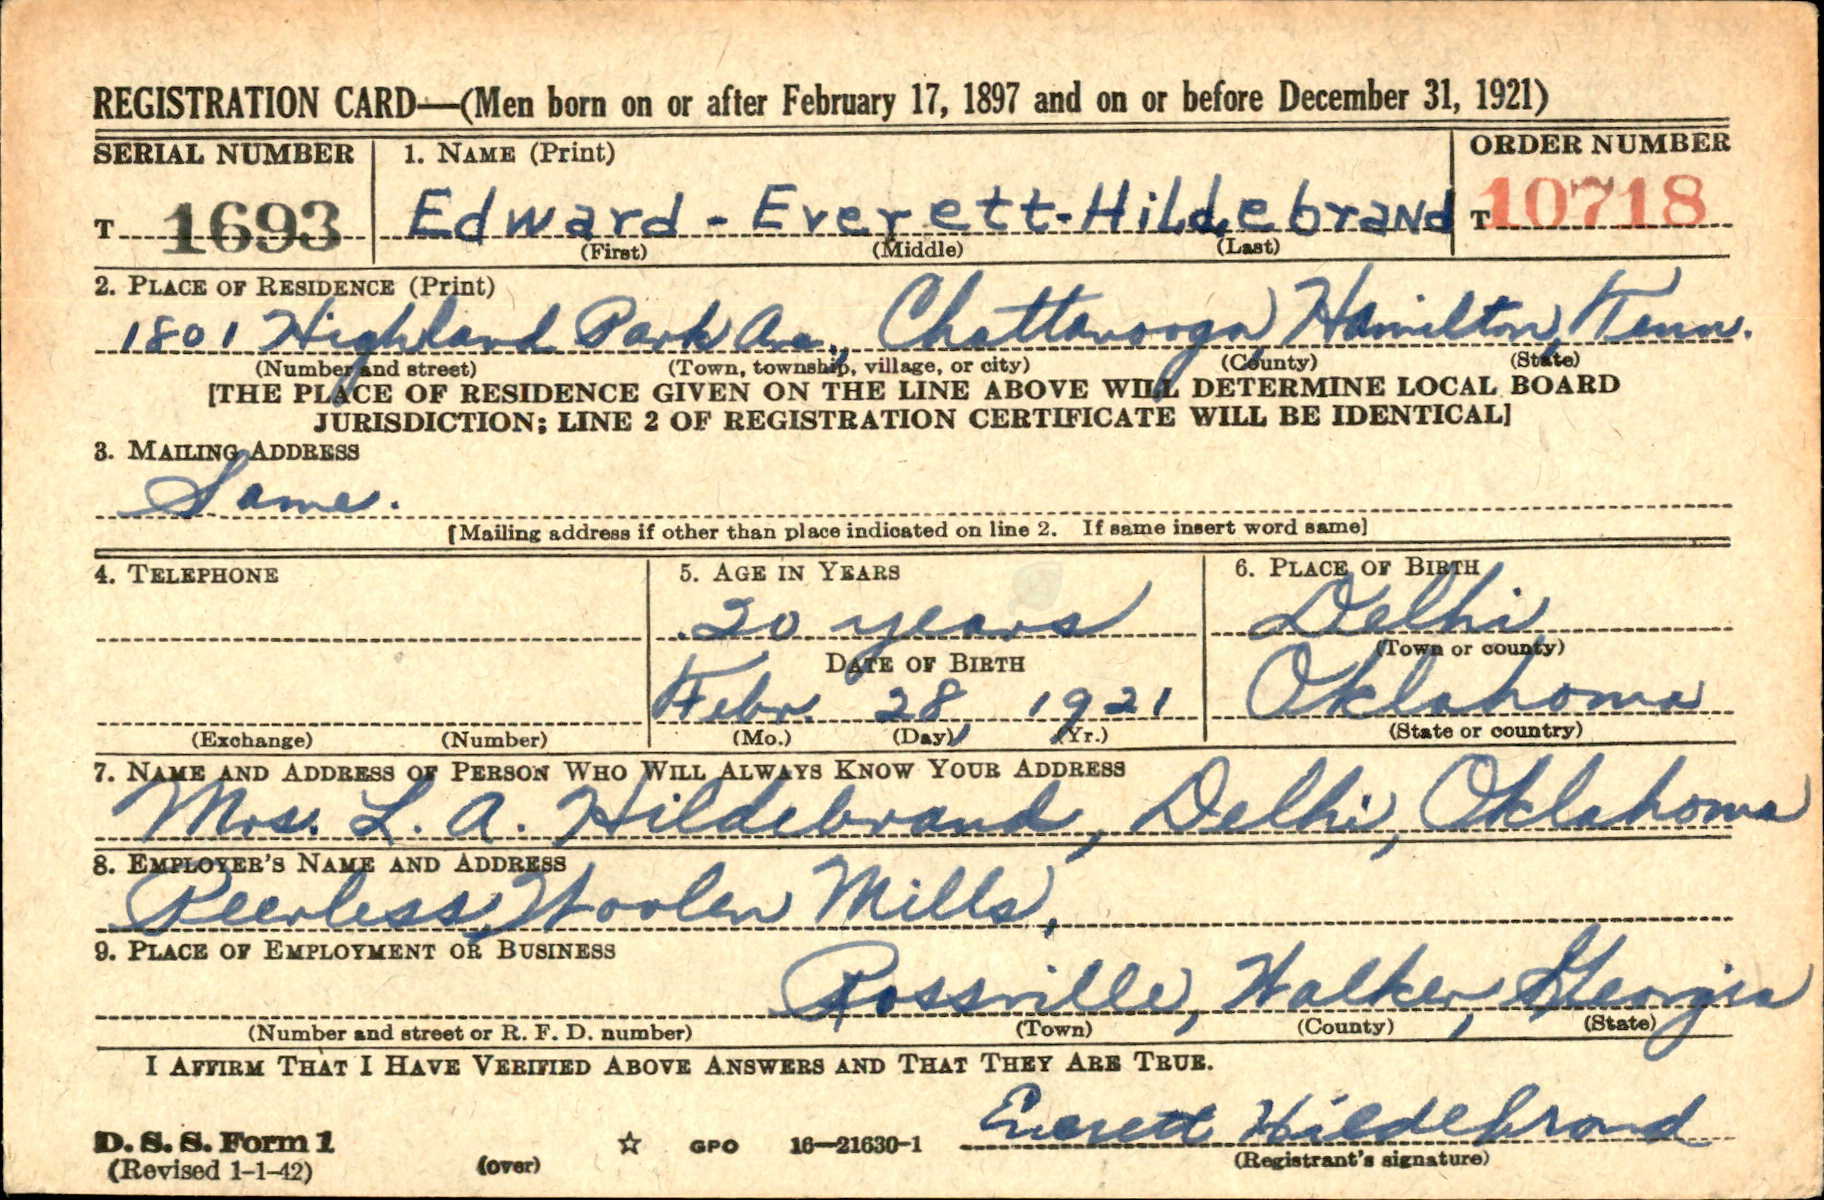 REGISTRATION CARD—(Men born on or after February 17, 1897 and on or before December 31, 1921)
SERIAL NUMBER 1. NAME (Print) ORDER NUMBER
T 1693 Edward - Everett - Hildebrand T 10718
(First) (Middle) (Last)
2. PLACE OF RESIDENCE (Print)
1801 Highland Park Ave., Chattanooga, Hamilton, Tenn.
(Number and street) (Town, township, village, or city) (County) (State)
[THE PLACE OF RESIDENCE GIVEN ON THE LINE ABOVE WILL DETERMINE LOCAL BOARD
JURISDICTION; LINE 2 OF REGISTRATION CERTIFICATE WILL BE IDENTICAL]
3. MAILING ADDRESS
Same.
[Mailing address if other than place indicated on line 2. If same insert word same]
4. TELEPHONE 5. AGE IN YEARS 6. PLACE OF BIRTH
20 years Delhi
DATE OF BIRTH (Town or county)
Febr. 28, 1921 Oklahoma
(Exchange) (Number) (Mo.) (Day) (Yr.) (State or country)
7. NAME AND ADDRESS OF PERSON WHO WILL ALWAYS KNOW YOUR ADDRESS
Mrs. L. A. Hildebrand, Delhi, Oklahoma
8. EMPLOYER'S NAME AND ADDRESS
Peerless Woolen Mills,
9. PLACE OF EMPLOYMENT OR BUSINESS
Rossville, Walker, Georgia
(Number and street or R. F. D. number) (Town) (County) (State)
I AFFIRM THAT I HAVE VERIFIED ABOVE ANSWERS AND THAT THEY ARE TRUE.
Everett Hildebrand
D. S. S. Form 1 ☆ GPO 16—21630-1
(Revised 1-1-42) (over) (Registrant's signature)